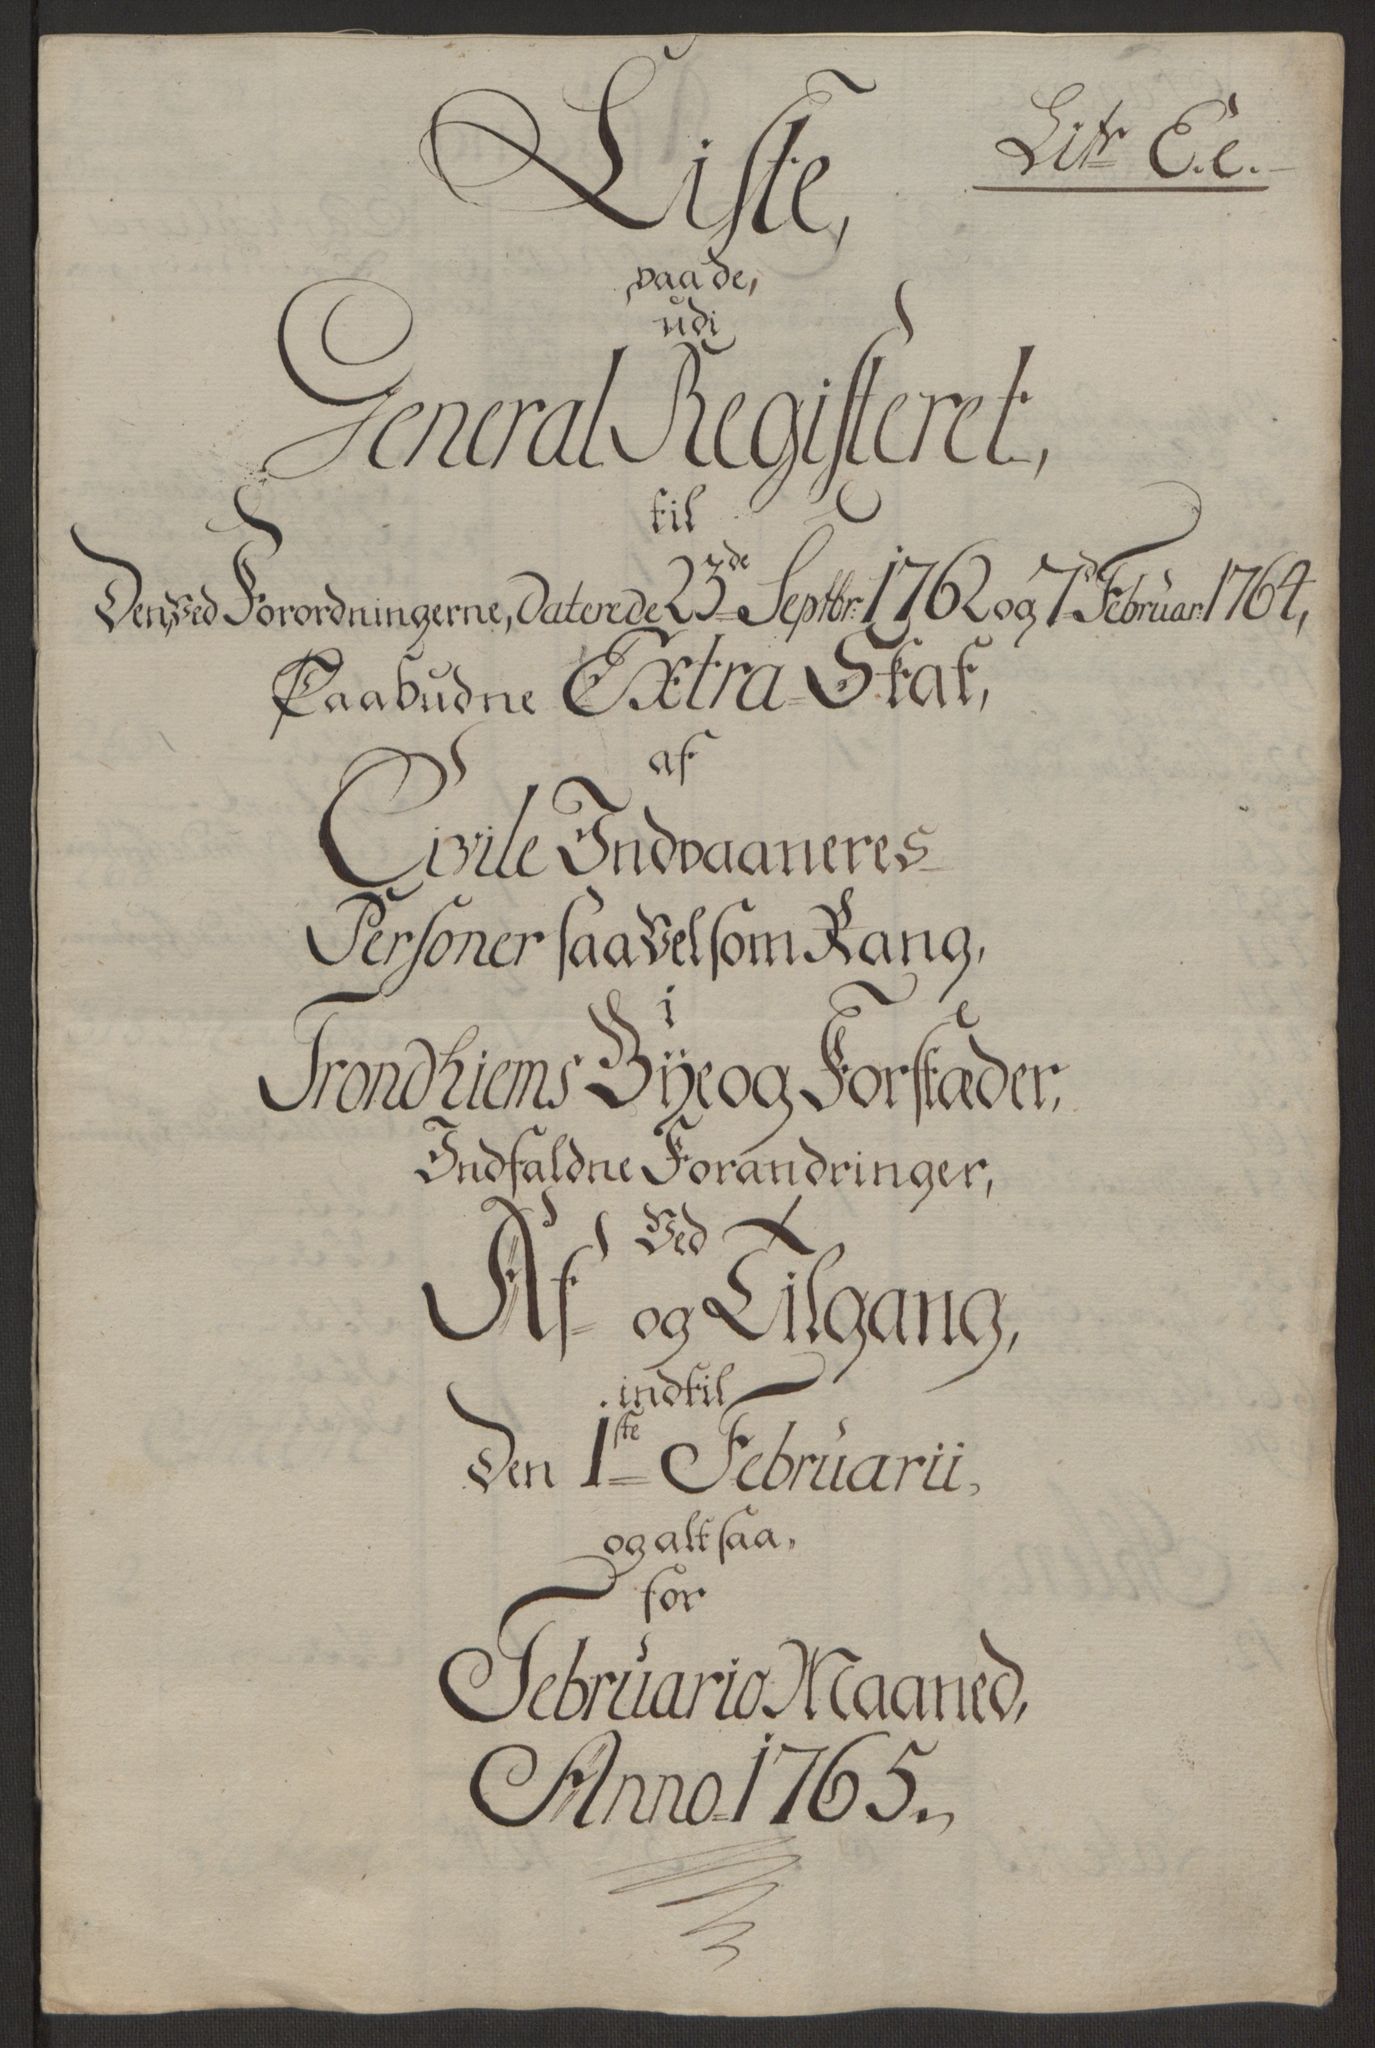 Litr E.e.
Liste,
paa de,
udi
General Registeret,
til
Den, ved Forordningerne, Daterede 23de Septbr: 1762 og 7d Februar: 1764,
Paabudne Extra-Skat,
af
Civile Indvaaneres
Personer saavelsom Rang,
i
Trondhiems Bÿe og Forstæder,
Indfaldne Forandringer,
ved
Af- og Tilgang,
indtil
Den 1ste Februarii,
og altsaa,
for
Februario Maaned,
Anno 1765.